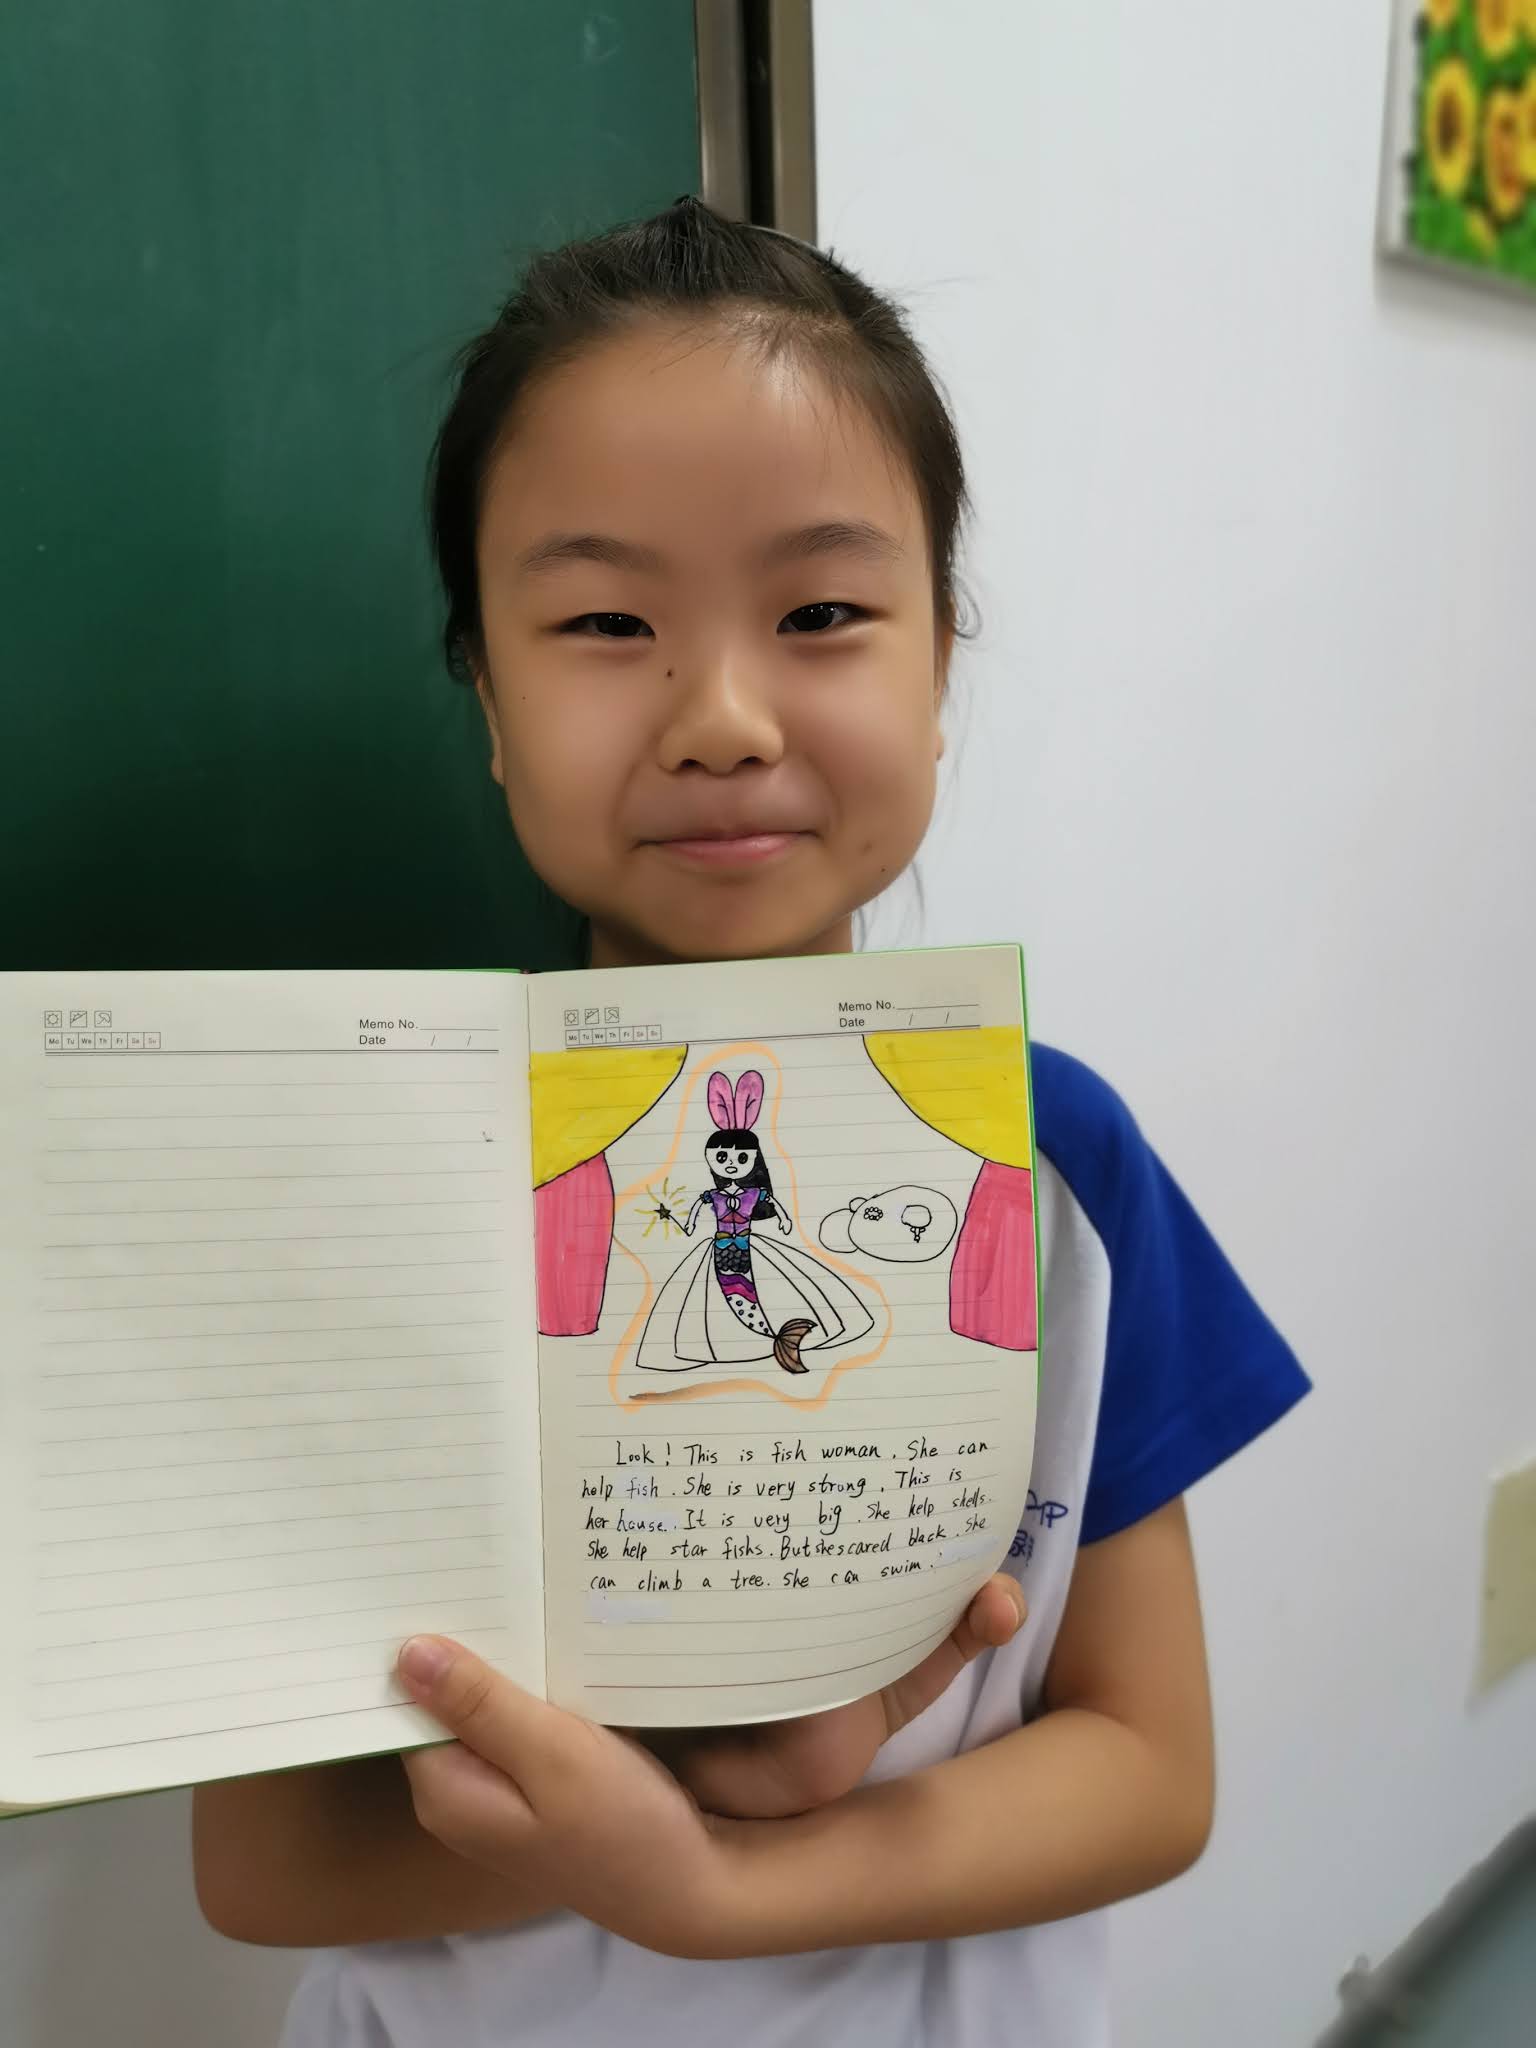 Memo No.
Date / /
Mo Tu We Th Fr Sa Su
Memo No.
Date / /
Mo Tu We Th Fr Sa Su
Look! This is fish woman. She can
help fish. She is very strong. This is
her house. It is very big. She help shells.
She help star fishs. But she scared black. She
can climb a tree. She can swim.